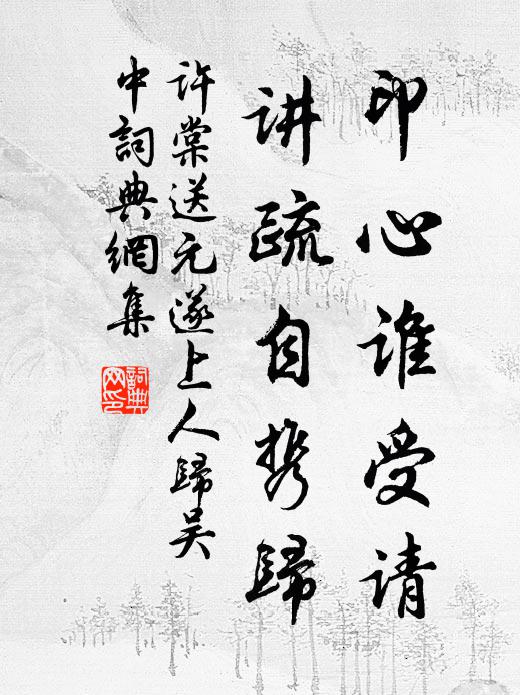 印心谁受请
讲疏自携歸
许棠送元遂上人歸吴
中詞典網集
詞典
网印